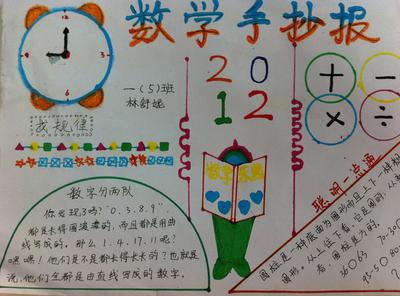 数学手抄报
12
9 3
6
2 0
1 2
+ −
× ÷
一(5)班
林舒妮
找规律
数字分两队
你发现了吗?"0.3.8.9"
都是长得圆溜溜的,而且都是用曲
线写成的。那么1.4.17.11呢?
嘿嘿!他们是不是都长得长长的?也就是
说,他们全都是由直线写成的数字。
数学
聪明一点通
圆柱是一种底面为圆形而且上下一样粗
图形,从上往下看,它是圆的,从
看,圆柱是方的
36○63 70-30
95-50 80